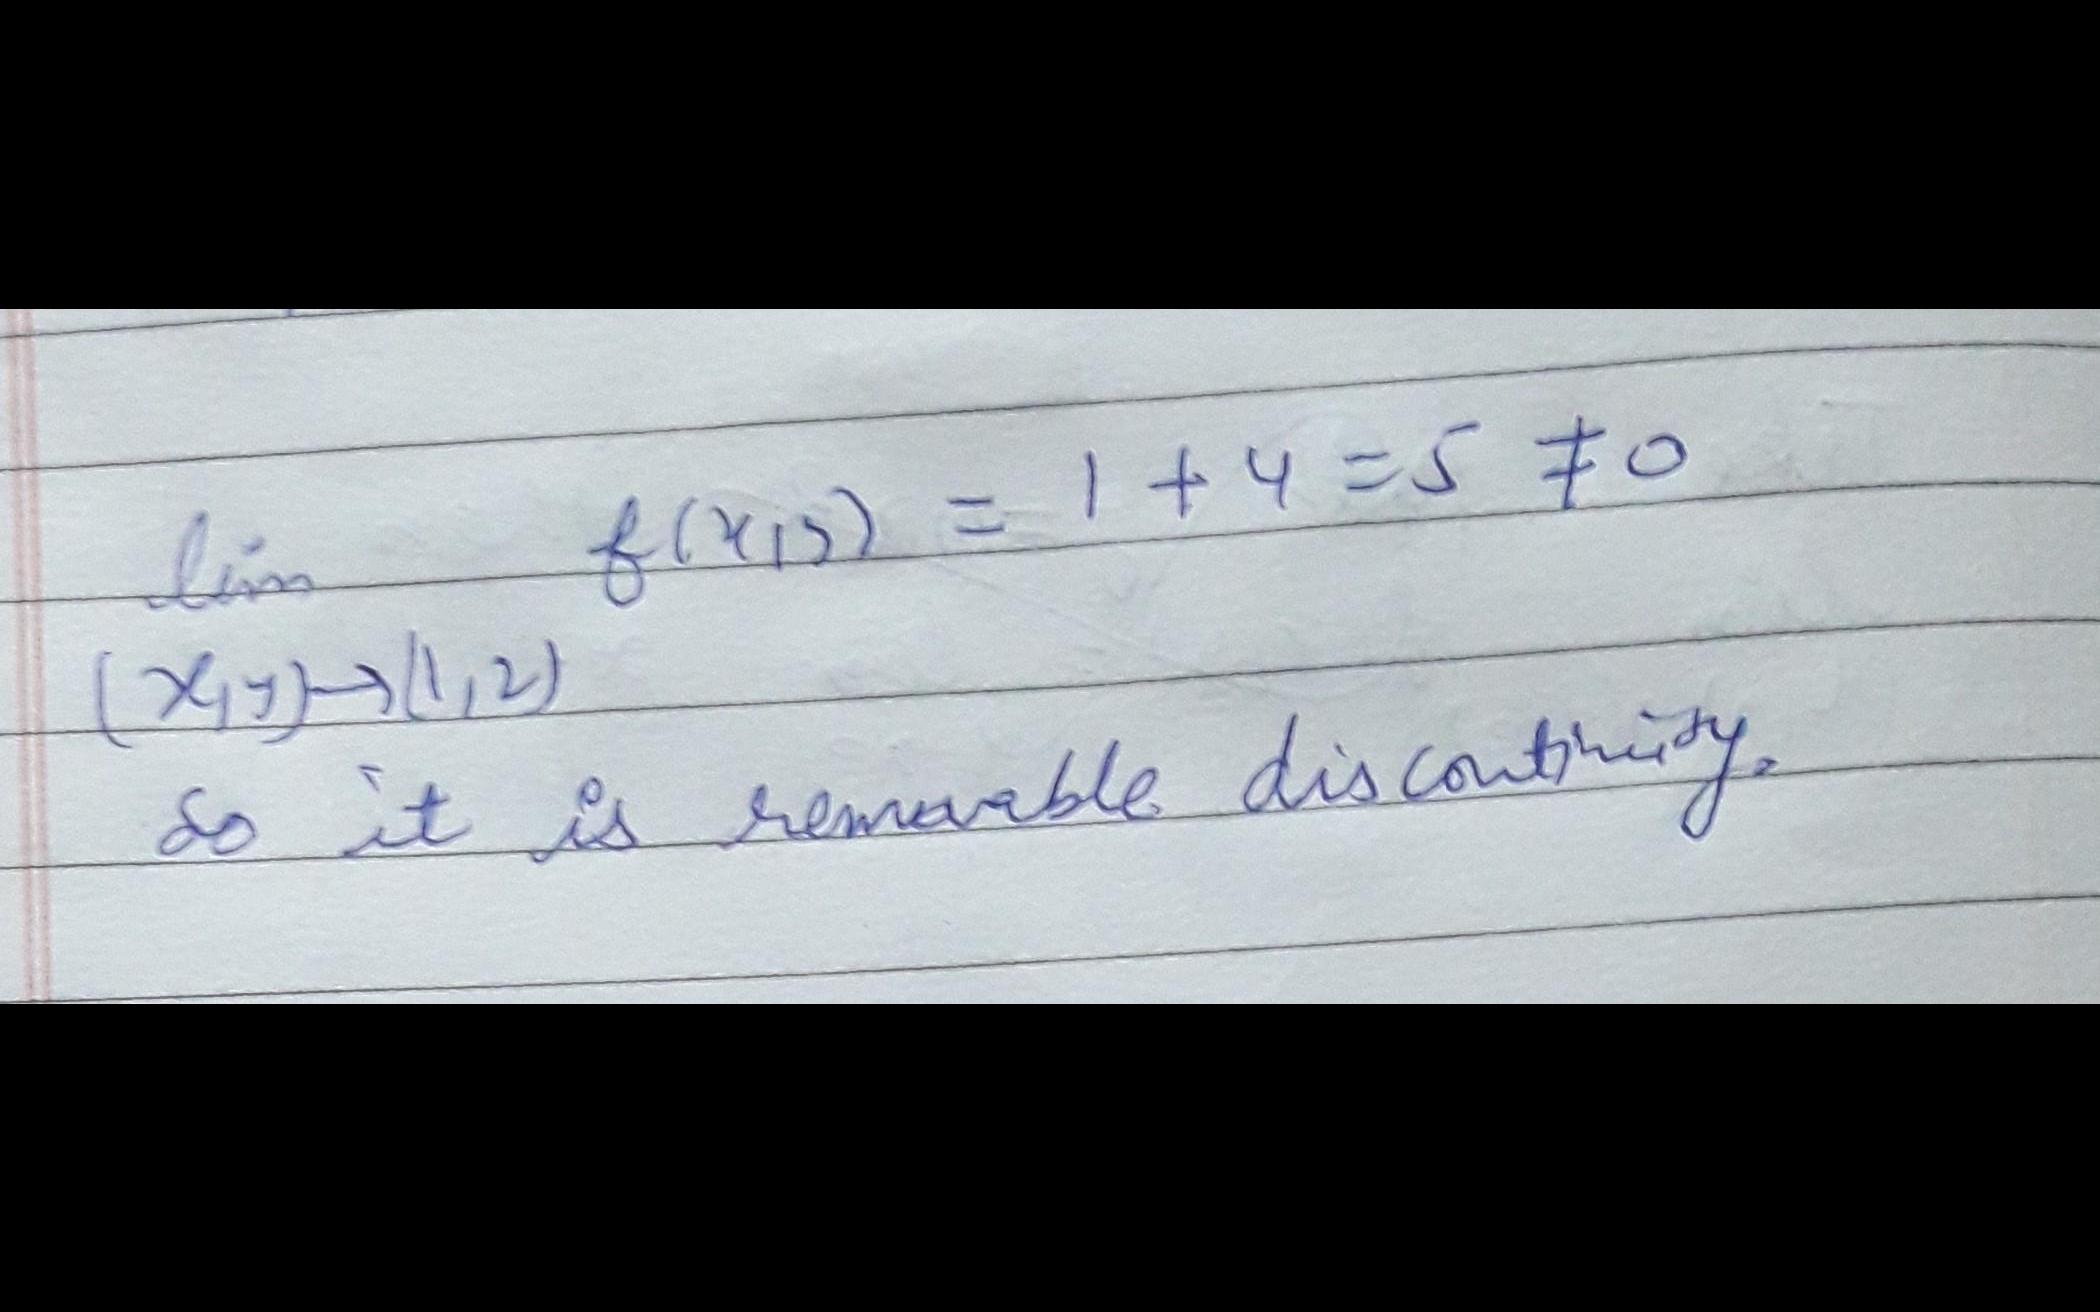 lim f(x,y) = 1 + 4 = 5 ≠ 0
(x,y)→(1,2)
So it is removable discontinuity.